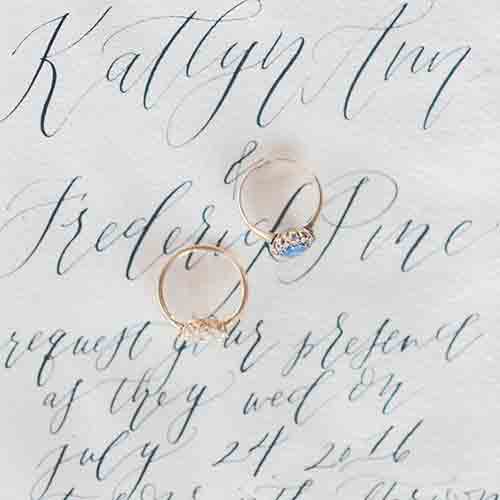 Katlyn Ann
&
Frederick Pine
request your presence
as they wed on
july 24 2016